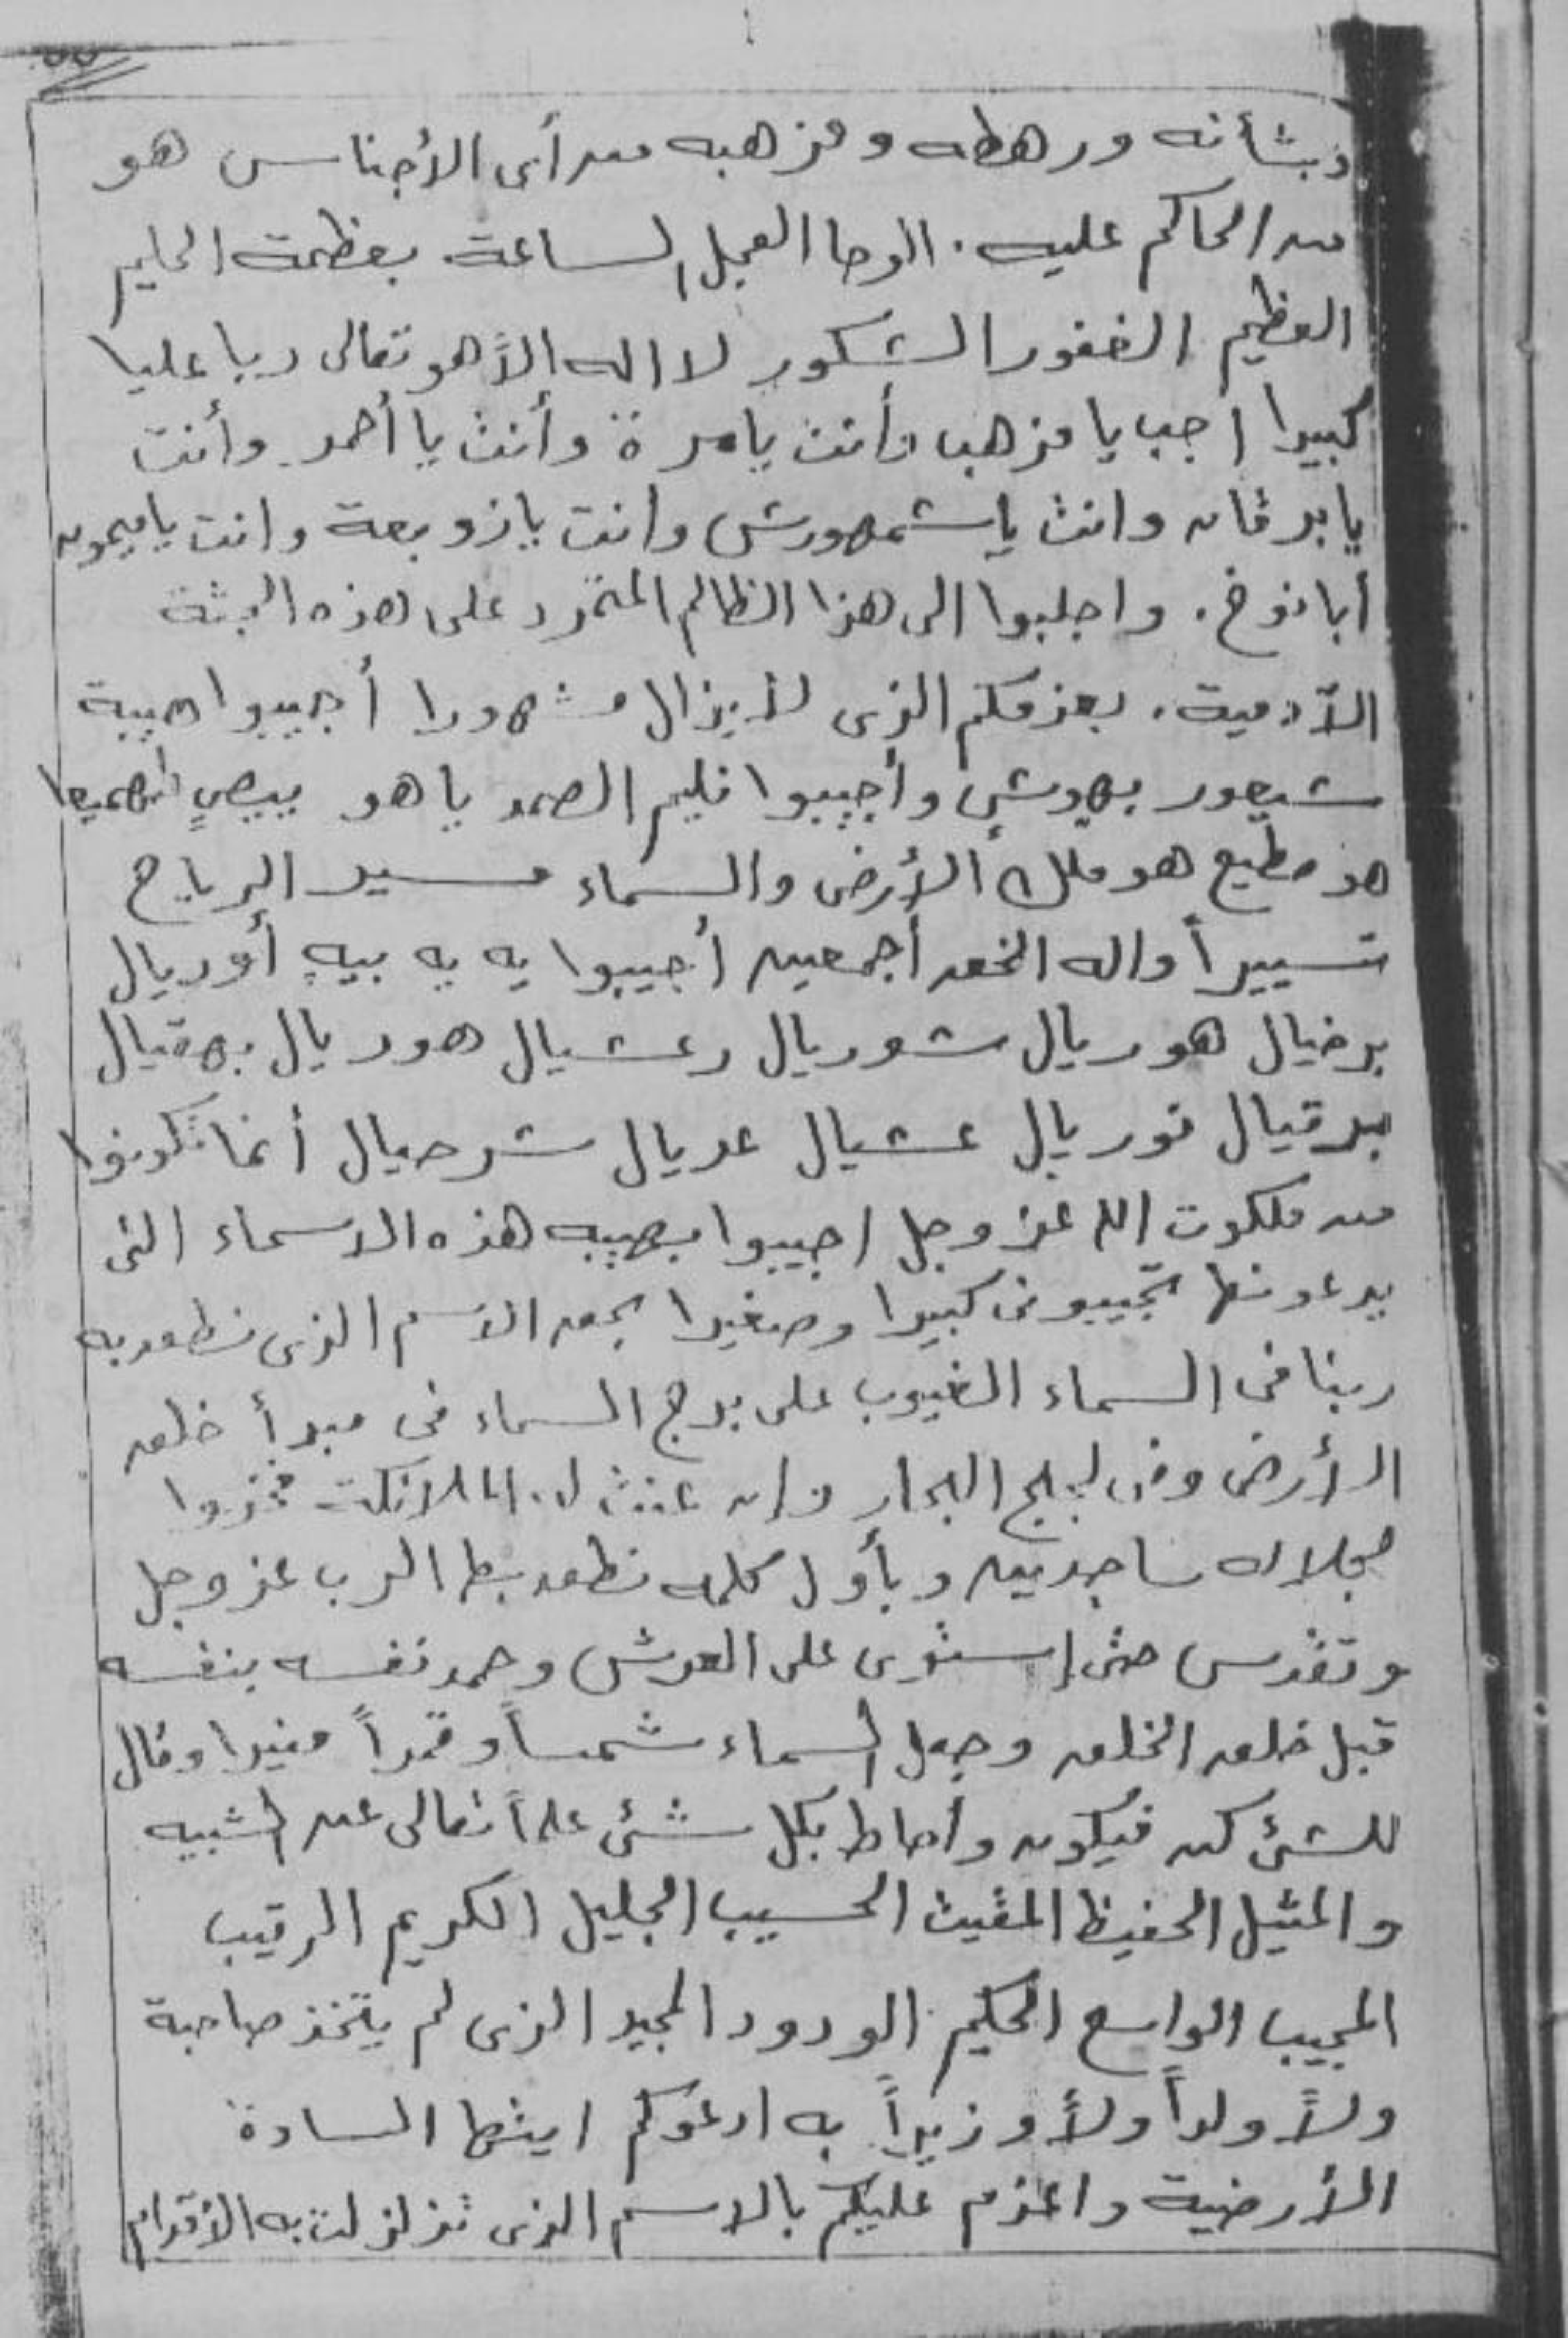 وبشأنه ورهطه ومذهبه من أى الأجناس هو
من الحاكم عليه . الوحا العجل الساعة بعظمة الحليم
العظيم الغفور الشكور لا اله الأهو تعالى ربا عليا
كبيرا اجب يا مذهب وأنت يا مرة وأنت يا أحمر وأنت
يا برقان وانت يا شمهورش وانت يا زوبعة وانت يا ميمون
أبا نوخ . واجلبوا الى هذا الظالم المتمرد على هذه الجثة
الآدمية . بعزمكم الذى لأيزال مشهورا أجيبوا هيبة
شيعور بهوشٍ وأجيبوا فليم الصمد يا هو بيصٍ
هو مطيع هو ملك الأرض والسماء مسير الرياح
تسييراً واله الخلق أجمعين أجيبوا يه يه بيه أوريال
برخيال هوريال شوريال رعشيال هوريال بهقيال
برقيال نوريال عشيال عريال شرحيال أنما تكونوا
من ملكوت الله عز وجل اجيبوا بهيبه هذه الاسماء التى
يدعونها تجيبونى كبيرا وصغيرا بحق الاسم الذى نطق به
ربنا فى السماء الغيوب على برج السماء فى مبدأ خلق
الأرض وفى لجلج البحار وان عنت له الملائكت فخروا
لجلاله ساجدين وبأول كلمه نطق بها الرب عز وجل
وتقدس حتى إستوى على العرش وحمد نفسه بنفسه
قبل خلق الخلق وجعل السماء شمساً وقمراً منيرا وقال
للشئ كن فيكون وأحاط بكل شئ علماً تعالى عن الشبيه
والمثيل الحفيظ المقيت الحسيب الجليل الكريم الرقيب
المجيب الواسع الحكيم الودود المجيد الذى لم يتخذ صاحبة
ولأ ولداً ولأ وزيراً به ادعوكم ايتها السادة
الأرضية واعزم عليكم بالاسم الذى تزلزلت به الأقدام